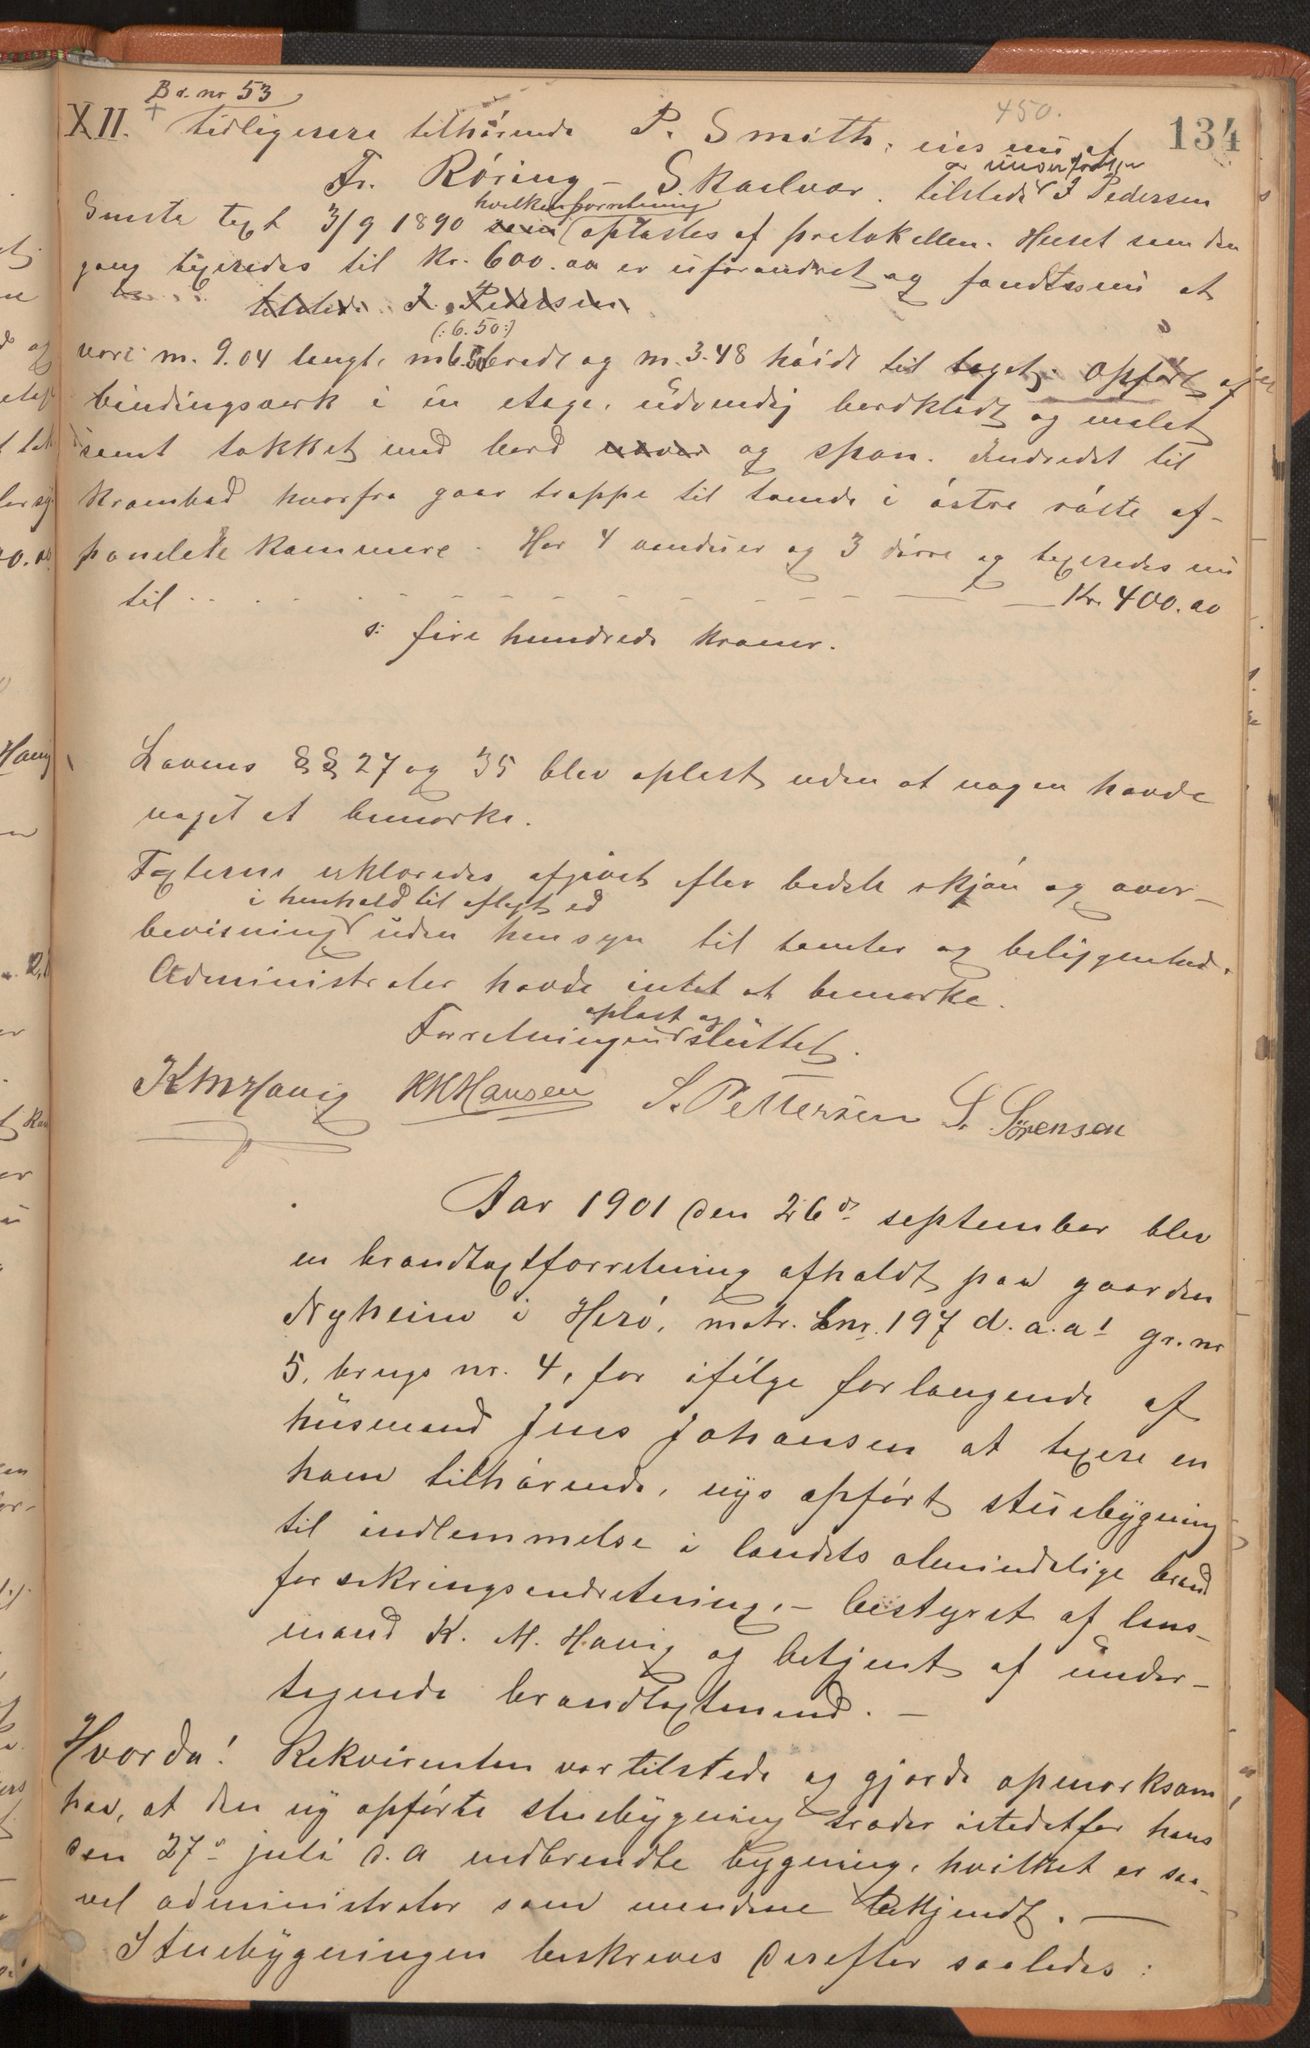 Bd. nr 53
450.
134
XII. + tidligere tilhørende P. Smith, eies nu af
Fr. Røring - Skaalvær. tilstede J Pedersen
hvilken forretning
Sidste taxt 3/9 1890 som oplæstes af protokollen. Huset som den
gang taxeredes til Kr. 600.00 er uforandret og fandtes nu at
tilstede J. Pedersen
(:6.50:)
være m. 9.04 langt, m 6.50 bredt og m. 3.48 høide til taget. Opført af
bindingsværk i en etage, udvendig bordklædt og malet
samt tækket med bord never og spon. Indredet til
krambod hvorfra gaar trappe til tvende i østre røste af-
panelede kammere. Har 4 vinduer og 3 dørre og taxeredes nu
til - - - - Kr. 400.00
s: fire hundrede kroner.
Lovens §§ 27 og 35 blev oplæst uden at nogen havde
noget at bemærke.
Taxterne erklæredes afgivet efter bedste skjøn og over-
i henhold til aflagt ed
bevisning uden hensyn til tomter og beliggenhed.
Administrator havde intet at bemærke.
oplæst og
Forretningen sluttet.
K M Havig HKHansen S. Pettersen S. Sørensen
Aar 1901 den 26de september blev
en brandtaxtforretning afholdt paa gaarden
Nyheim i Herø, matr. Lnr. 197 d. a. a! gr. nr
5, brugs nr. 4, for ifølge forlangende af
husmand Jens Johansen at taxere en
ham tilhørende, nys opført stuebygning
til indlemmelse i landets almindelige brand
forsikringsindretning, - bestyret af lens-
mand K. M. Havig og betjent af under-
tegnede brandtaxtmænd. -
Hvorda! Rekvirenten var tilstede og gjorde opmærksom
paa, at den ny opførte stuebygning træder istedetfor hans
den 27de juli d. a nedbrændte bygning, hvilket er saa-
vel administrator som mændene bekjendt. -
Stuebygningen beskrives derefter saaledes: